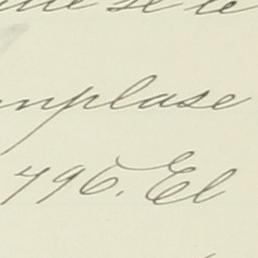 se le
mplase
1796. El